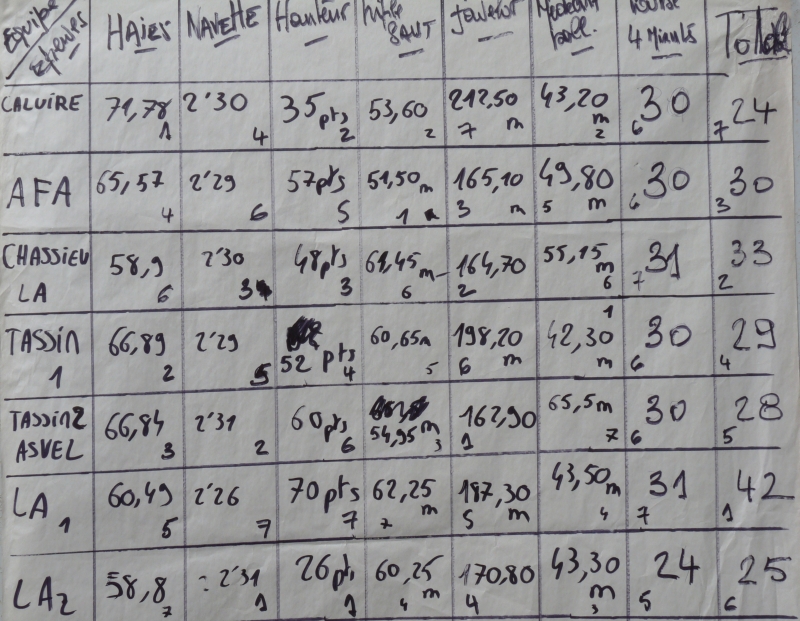 Equipe HAIES NAVETTE Hauteur Multi SAUT Javelot Medecin ball. course 4 Minutes Total
épreuves
CALUIRE 71,78 1 2'30 4 35 pts 2 53,60 2 212,50 m 7 43,20 m 2 30 6 24 7
AFA 65,57 4 2'29 6 57pts 5 51,50 m 1 165,10 m 3 49,80 m 5 30 6 30 3
CHASSIEU LA 58,9 6 2'30 3 48pts 3 61,45 m 6 164,70 2 55,15 m 6 31 7 33 2
TASSIN 1 66,89 2 2'29 5 52 pts 4 60,65m 5 198,20 m 6 42,30 m 1 30 6 29 4
TASSIN2 ASVEL 66,84 3 2'31 2 60pts 6 54,95 m 3 162,90 1 65,5m 7 30 6 28 5
LA 1 60,49 5 2'26 7 70 pts 7 62,25 m 7 187,30 m 5 43,50 m 4 31 7 42 1
LA2 58,8 7 2'31 1 26pts 1 60,25 m 4 170,80 4 43,30 m 3 24 5 25 6